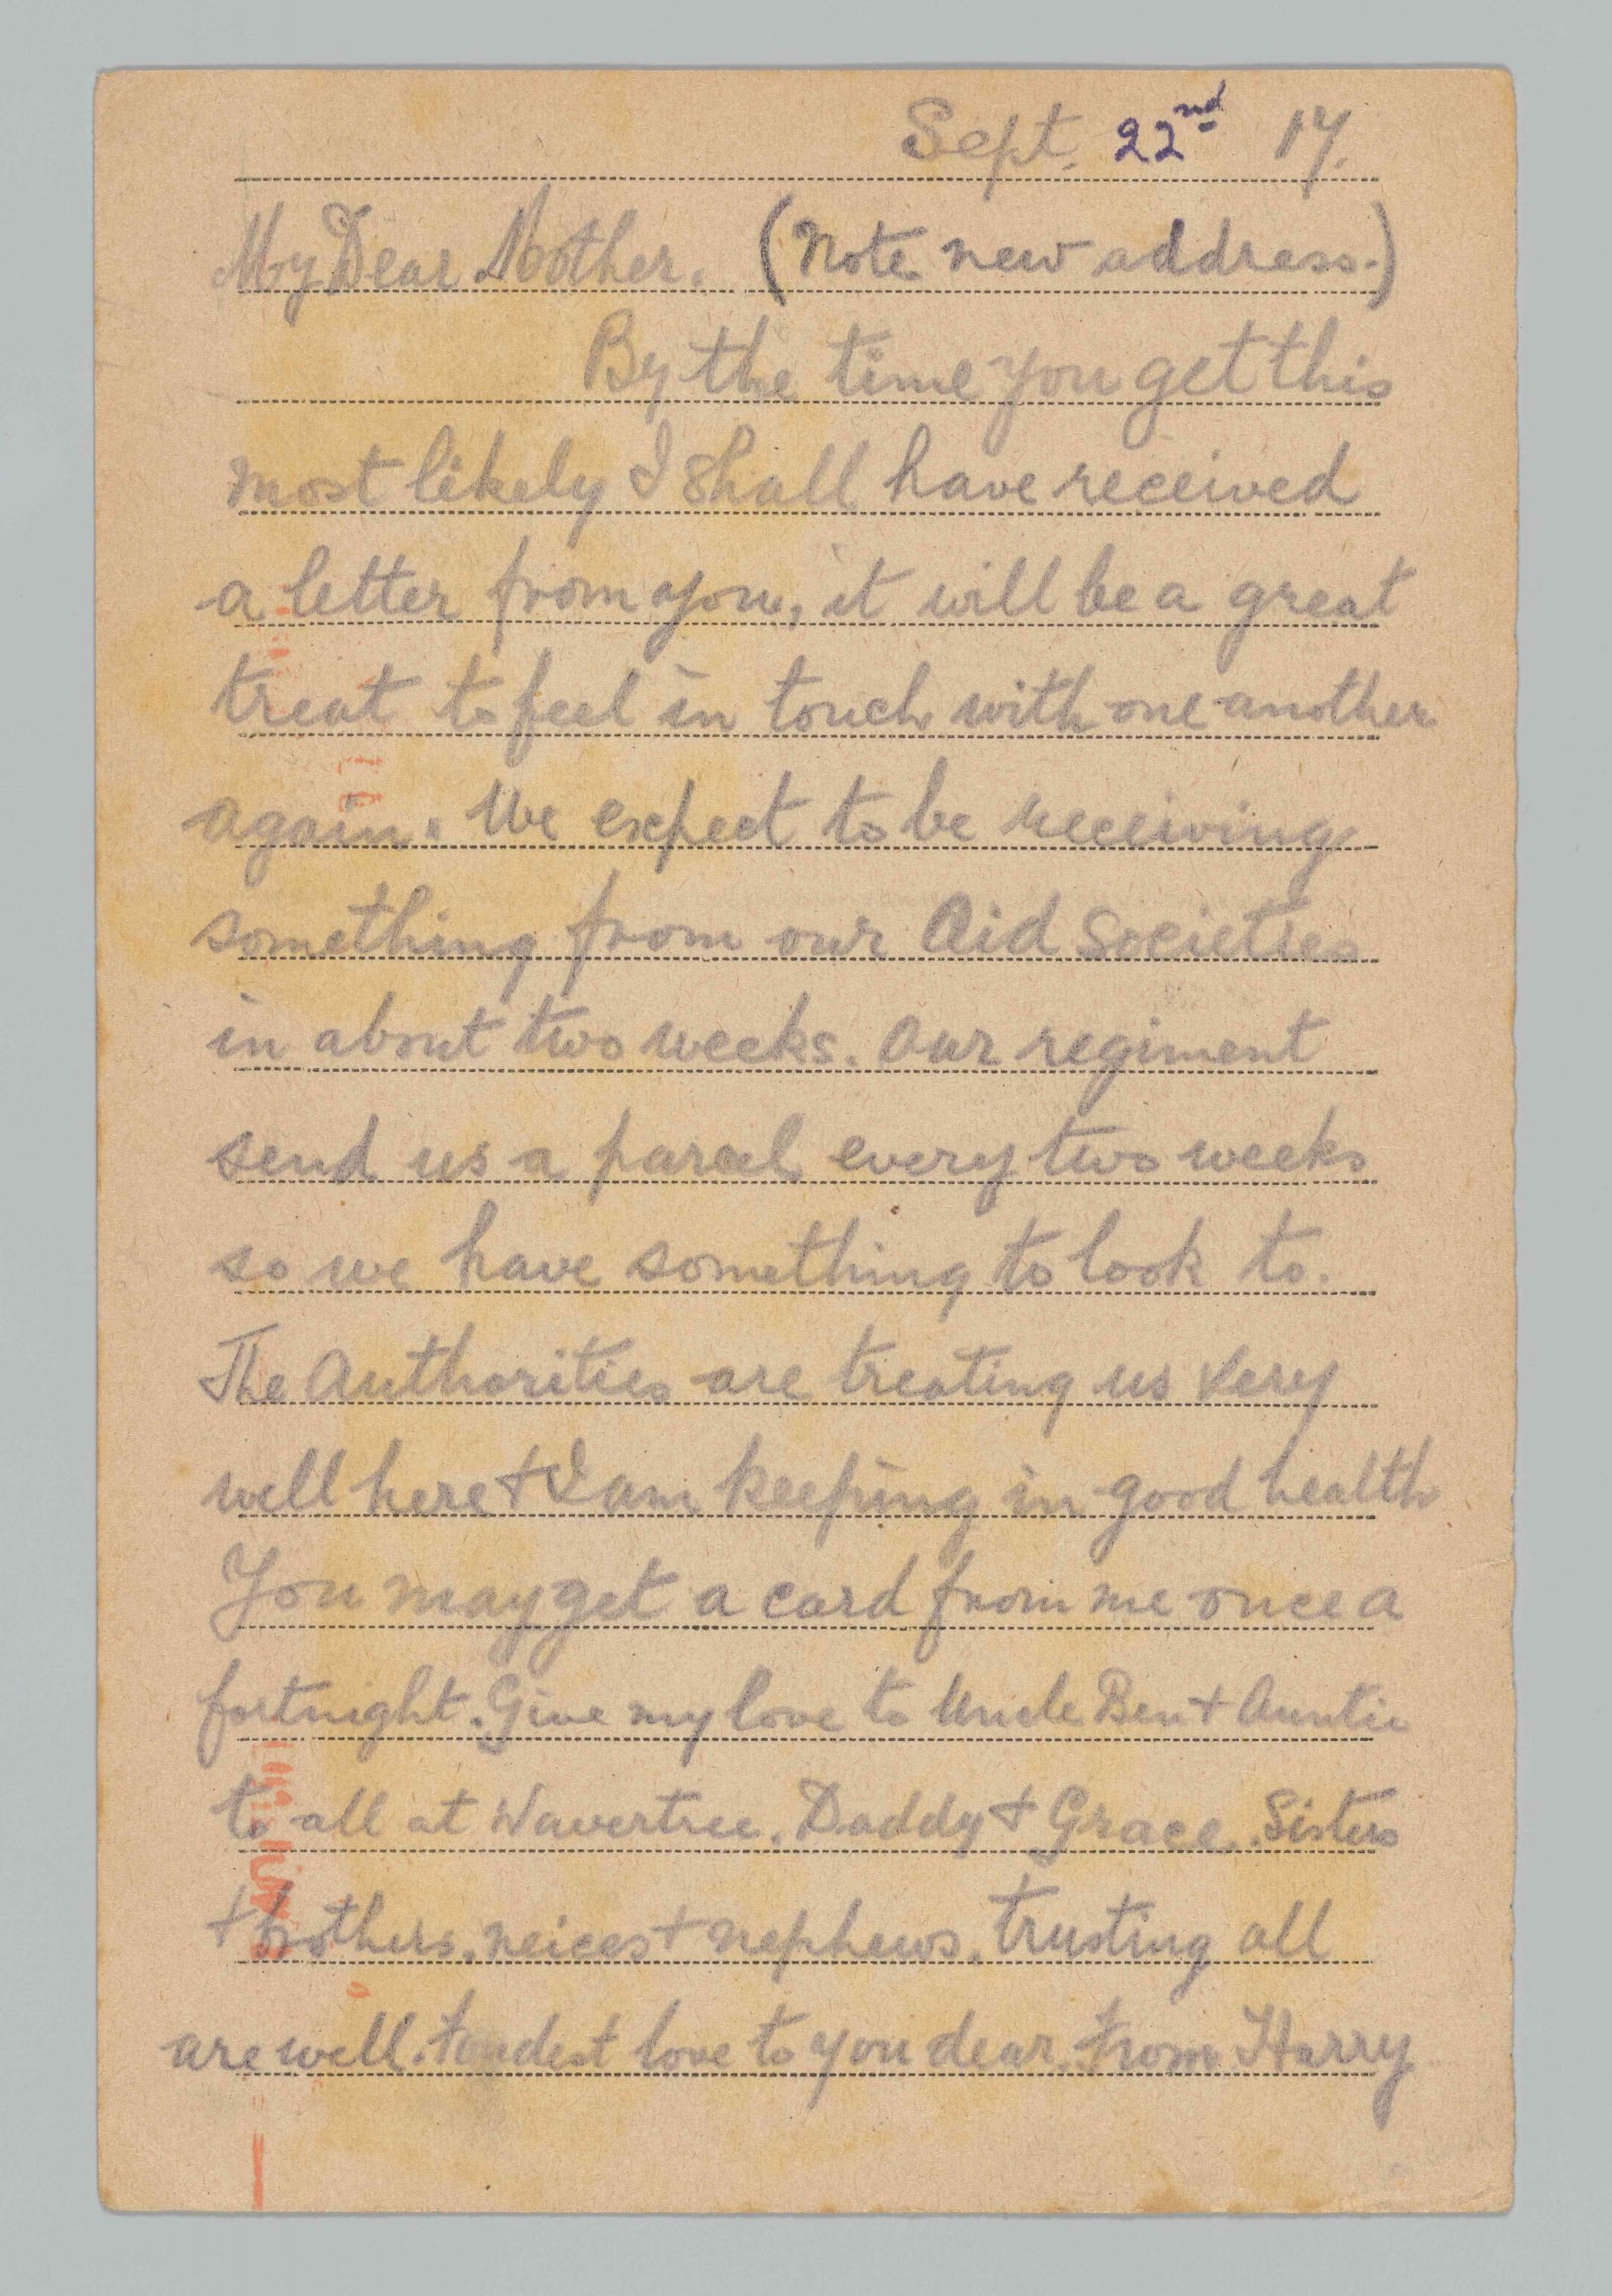 Sept. 22nd 17.
My Dear Mother. (Note new address.)
By the time you get this
most likely I shall have received
a letter from you, it will be a great
treat to feel in touch with one another
again. We expect to be receiving
something from our Aid Societies
in about two weeks. Our regiment
send us a parcel every two weeks
so we have something to look to.
The Authorities are treating us very
well here + I am keeping in good health
You may get a card from me once a
fortnight. Give my love to Uncle Ben + Auntie
to all at Wavertree. Daddy + Grace. Sisters
+ brothers, neices + nephews, trusting all
are well. fondest love to you dear, from Harry